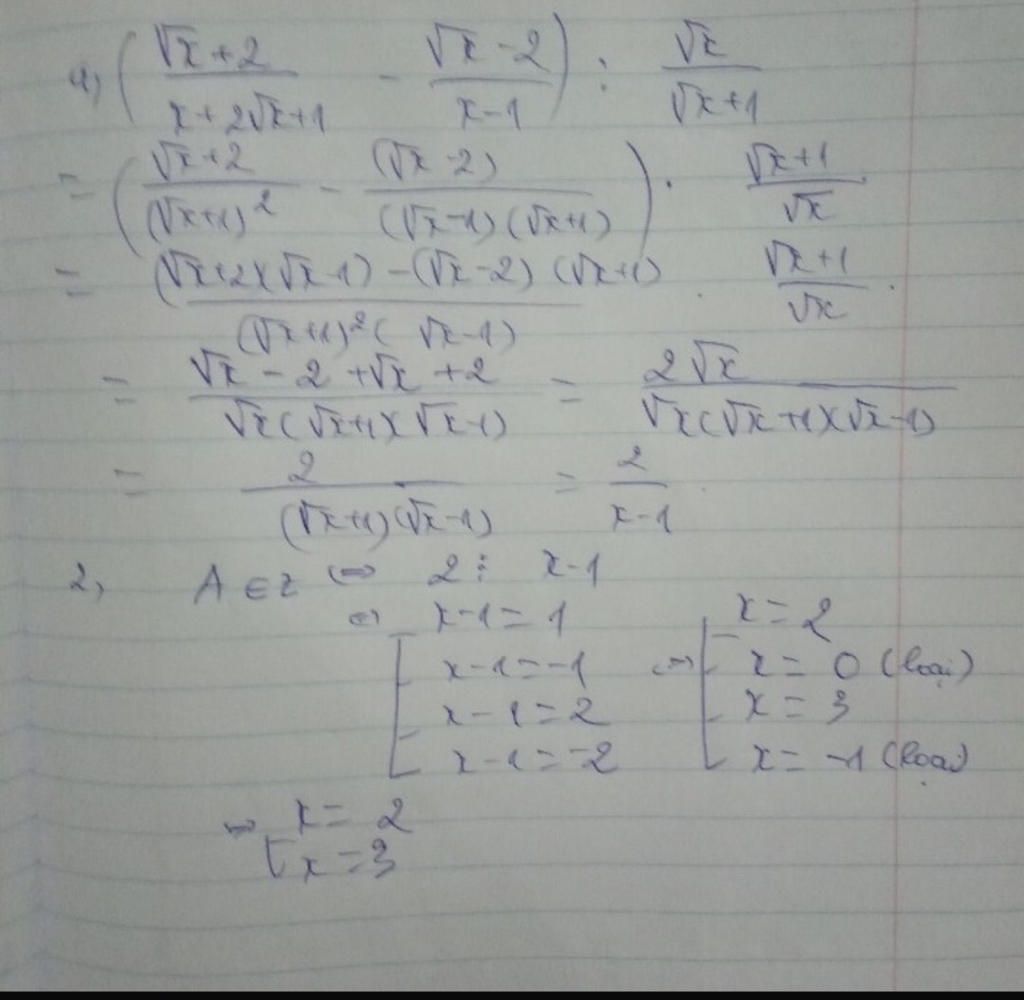 1, ( (√x+2)/(x+2√x+1) - (√x-2)/(x-1) ) : √x/(√x+1)
= ( (√x+2)/(√x+1)² - (√x-2)/((√x-1)(√x+1)) ) . (√x+1)/√x
= ((√x+2)(√x-1) - (√x-2)(√x+1))/((√x+1)²(√x-1)) . (√x+1)/√x .
= (√x-2+√x+2)/(√x(√x+1)(√x-1)) = 2√x/(√x(√x+1)(√x-1))
= 2/((√x+1)(√x-1)) = 2/(x-1) .
2, A ∈ Z ⇔ 2 ⋮ x-1
⇔ [ x-1=1 ⇔ [ x=2
x-1=-1 x=0 (loại)
x-1=2 x=3
x-1=-2 x=-1 (loại)
⇒ [ x=2
x=3